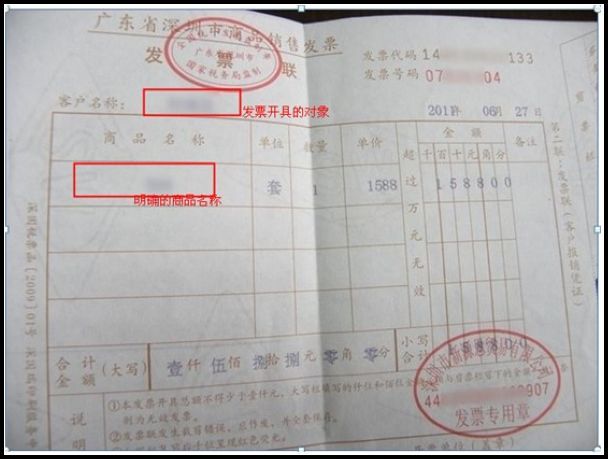 广东省深圳市商品销售发票
发票联
国家税务局监制
发票代码 14 133
发票号码 07 04
客户名称:
发票开具的对象
2011年 06月 27日
商品名称 单位 数量 单价 金额 备注
超过万元无效 千百十元角分
套 1 1588 158800
明确的商品名称
合计金额 (大写) 壹仟 伍佰 捌拾 捌元 零角 零分 小写合计
说明
①本发票开具总额不得少于壹仟元,大写栏填写的仟位和佰位金
则为无效发票。
②发票联发生裁剪错误、
发票专用章
44 907
第二联:发票联(客户报销凭证)
深国税票函〔2009〕01号